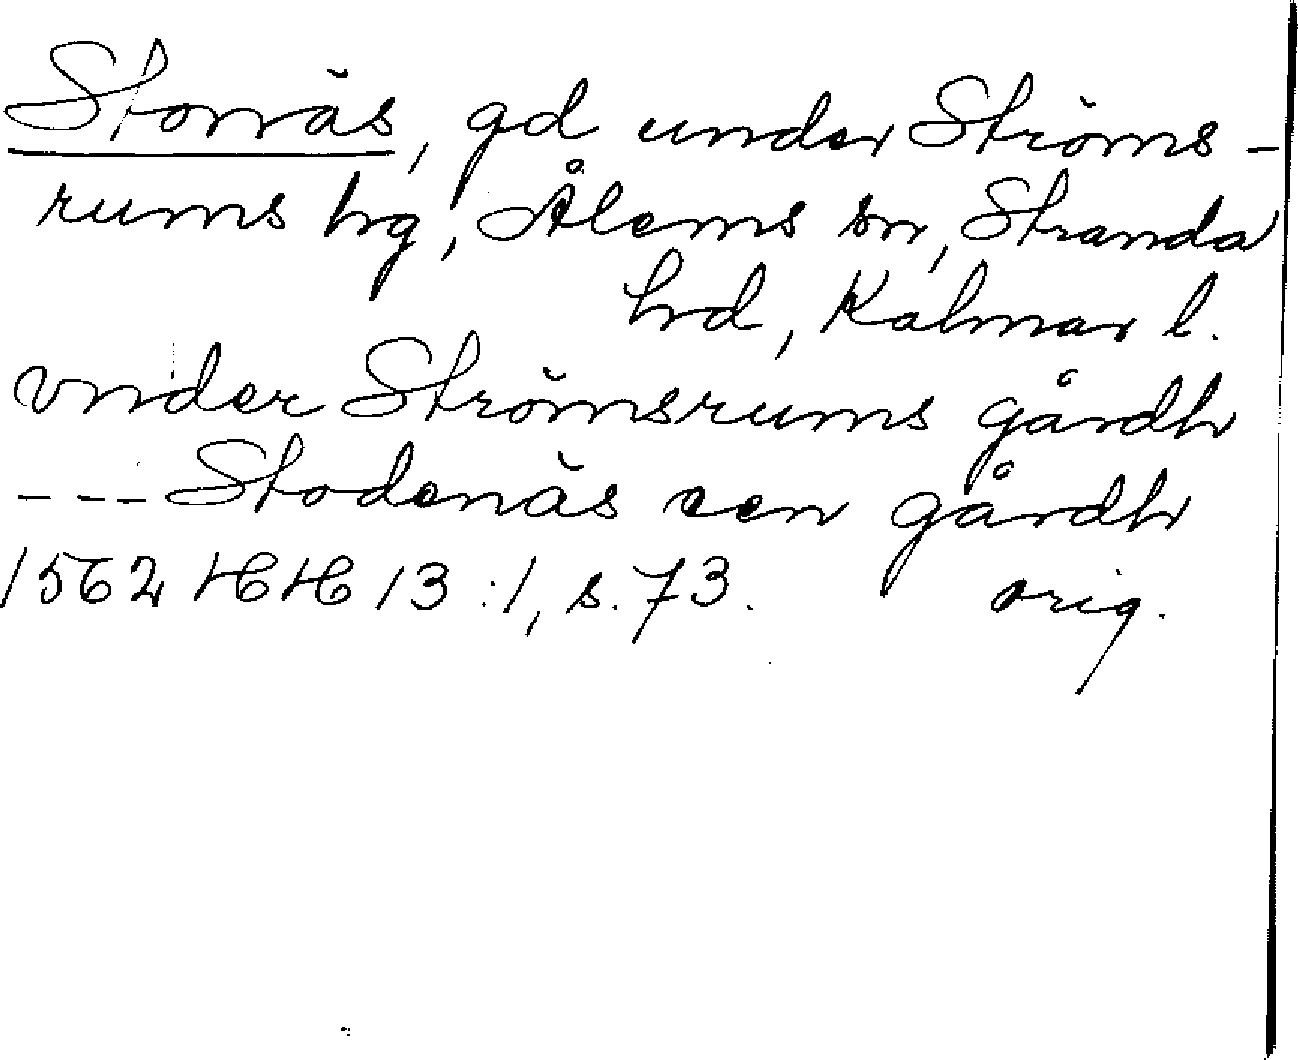 Stonäs, gd under Ströms-
rums hg, Ålems sn, Stranda
hrd, Kalmar l.
vnder Strömsrums gårdh
--- Stodenäs een gårdh
1562 HH 13:1, s. 73. orig.